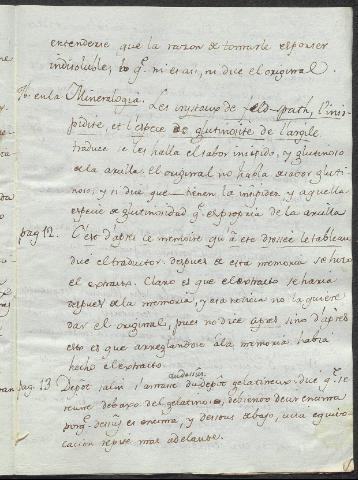 entenderse, que la razon de tomarle es por ser
indisoluble, lo q.e ni es asi, ni dice el original.
Yd. en la Mineralogia. Les crystaux de feld-spath, l'insi-
pidité, et l'espece de glutinosité de l'argile
traduce se les halla el sabor insipido, y glutinoso
de la arcilla. El original no habla de sabor gluti-
noso, y si dice que tienen la insipidez y aquella
especie de glutinosidad q.e es propria de la arcilla
pag 12. C'est d'après ce memoire qu'a eté dressée le tableau
dice el traductor. despues de esta memoria se hizo
el extracto. Claro es que el extracto se haria
despues de la memoria, y esta noticia no la quiere
dar el original, pues no dice après, sino d'après
esto es que arreglandose a la memoria habia
hecho el extracto.
pag. 13 Depôt salin s'amasse au dessus du depôt gelatineux: dice q.e se
reune debaxo del gelatinoso, debiendo decir encima
porq.e dessus es encima, y dessous debajo, esta equivo-
cacion repite mas adelante.